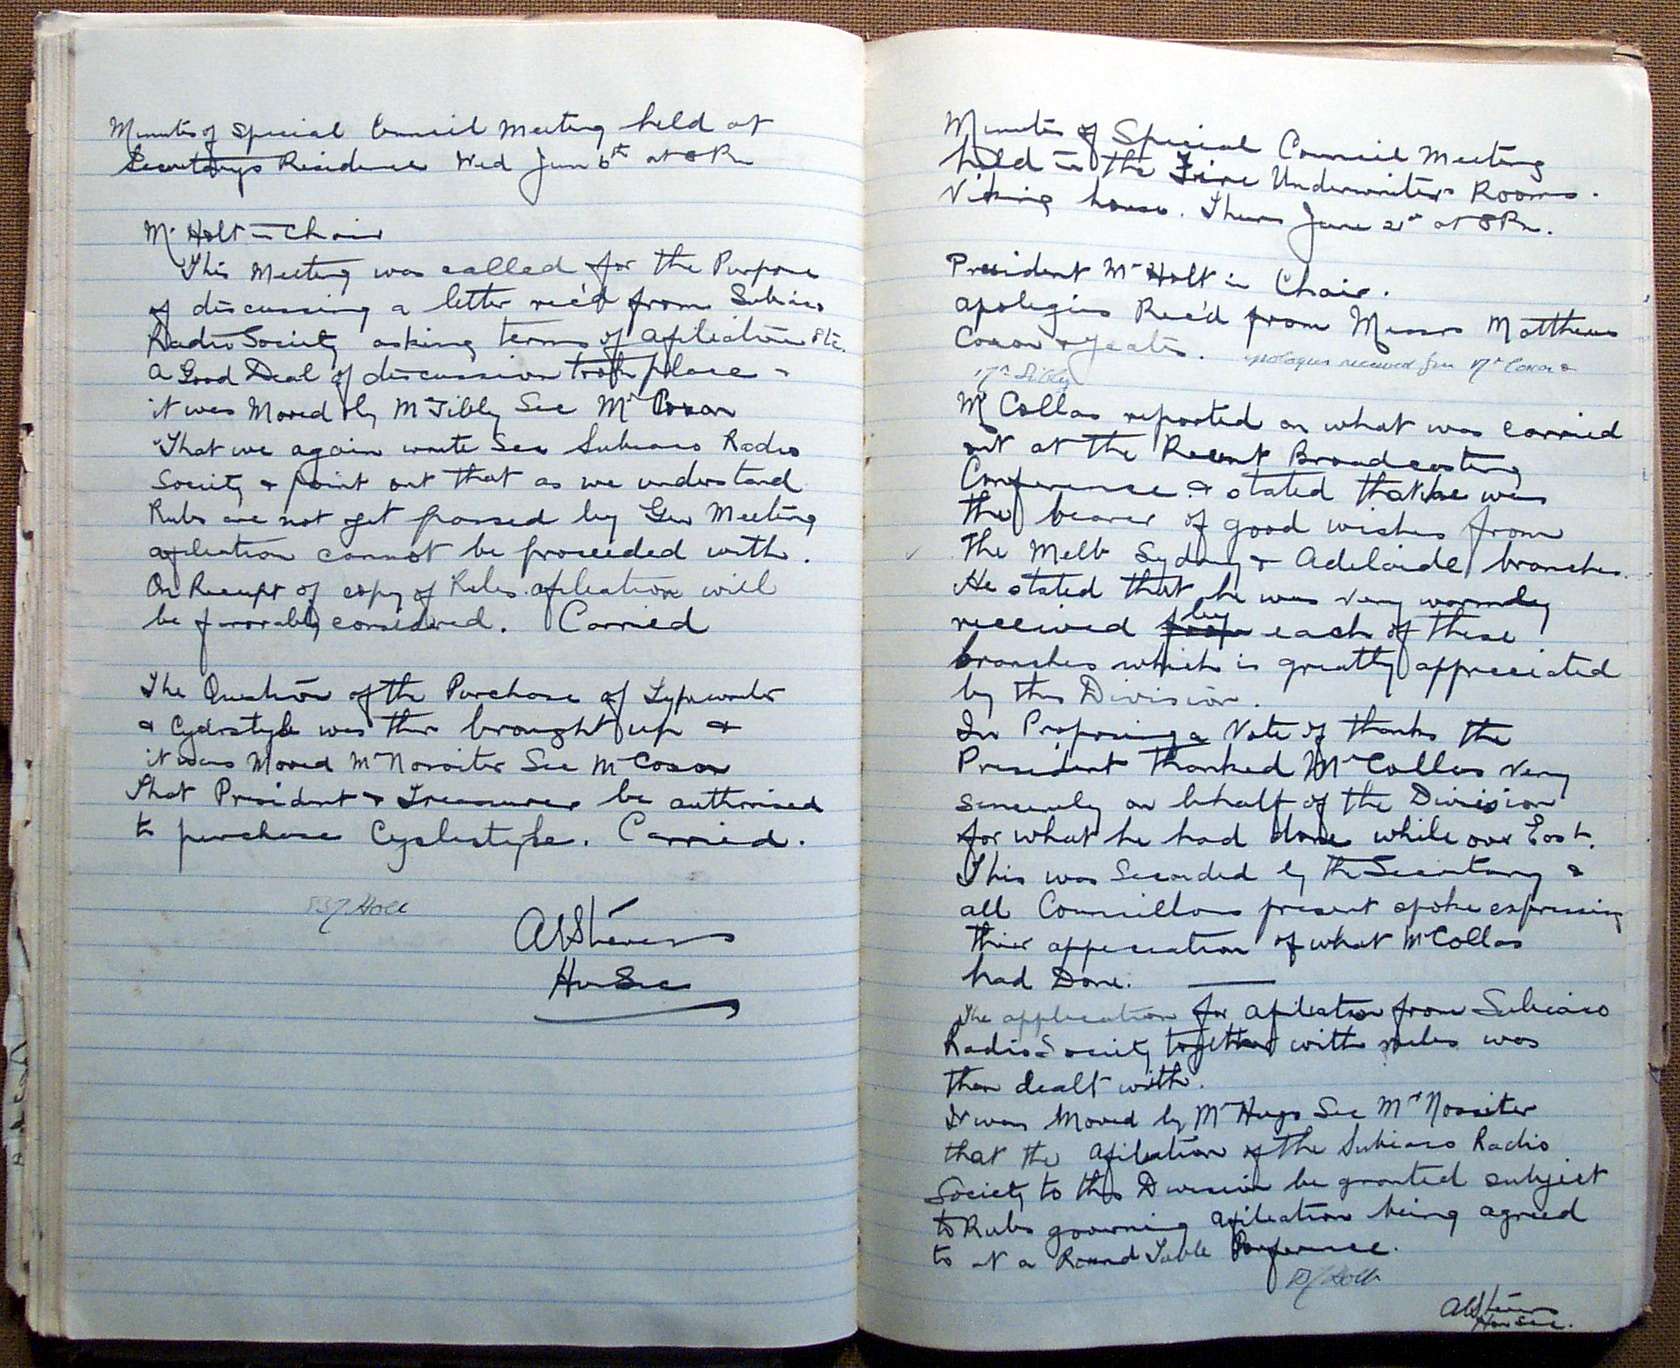 Minutes of Special Council Meeting held at
Secretarys Residence Wed June 6th at 8 Pm
Mr Holt in Chair
This Meeting was called for the Purpose
of discussing a letter rec'd from Subiaco
Radio Society asking terms of afiliation etc.
A Good Deal of discussion took place &
it was Moved by Mr Sibly Sec Mr Coxon
"That we again write Sec Subiaco Radio
Society & point out that as we understand
Rules are not yet passed by Gen Meeting
afiliation cannot be proceeded with.
On Receipt of copy of Rules afiliation will
be favorably considered. Carried
The Question of the Purchase of Typewriter
& Cyclostyle was then brought up &
it was Moved Mr Nossiter Sec Mr Coxon
That President & Treasurer be authorised
to purchase Cyclestyle. Carried.
Holt
A E Stevens
Hon Sec
Minutes of Special Council Meeting
held in the Fire Underwriters Rooms.
Viking house. Thurs June 21st at 8 Pm.
President Mr Holt in Chair.
Apologies Rec'd from Messrs Matthews
Coxon & Yeates. apologies received from Mr Coxon &
Mr Sibly
Mr Collas reported on what was carried
out at the Recent Broadcasting
Conference & stated that he was
the bearer of good wishes from
The Melb Sydney & Adelaide branches.
He stated that he was very warmly
received by each of these
branches which is greatly appreciated
by this Division.
In Proposing a Vote of thanks the
President thanked Mr Collas very
sincerely on behalf of the Division
for what he had done while over East.
This was Seconded by the Secretary &
all Councillors present spoke expressing
their appreciation of what Mr Collas
had Done.
The application for afiliation from Subiaco
Radio Society together with rules was
then dealt with.
It was Moved by Mr Hugo Sec Mr Nossiter
that the Afiliation of the Subiaco Radio
Society to this Division be granted subject
to Rules governing afiliation being agreed
to at a Round Table Conference.
Holt
A E Stevens
Hon Sec.